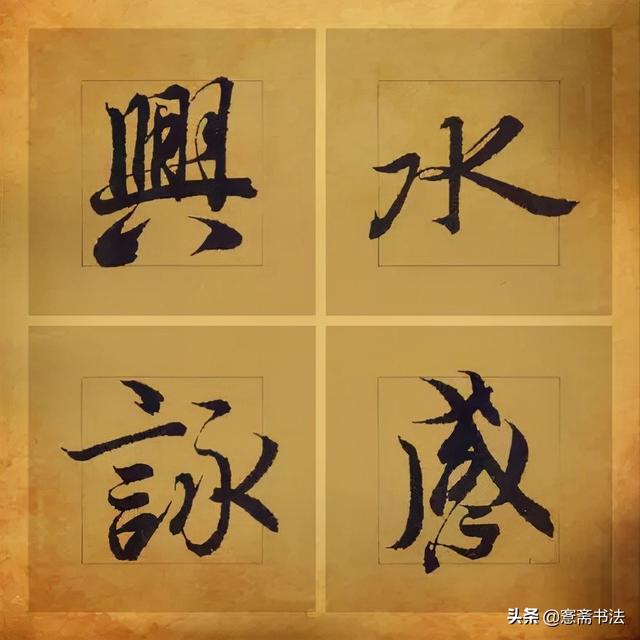 興 水
詠
头条 @窓斋书法